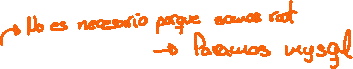 → No es necesario porque somos root
→ Paramos mysql